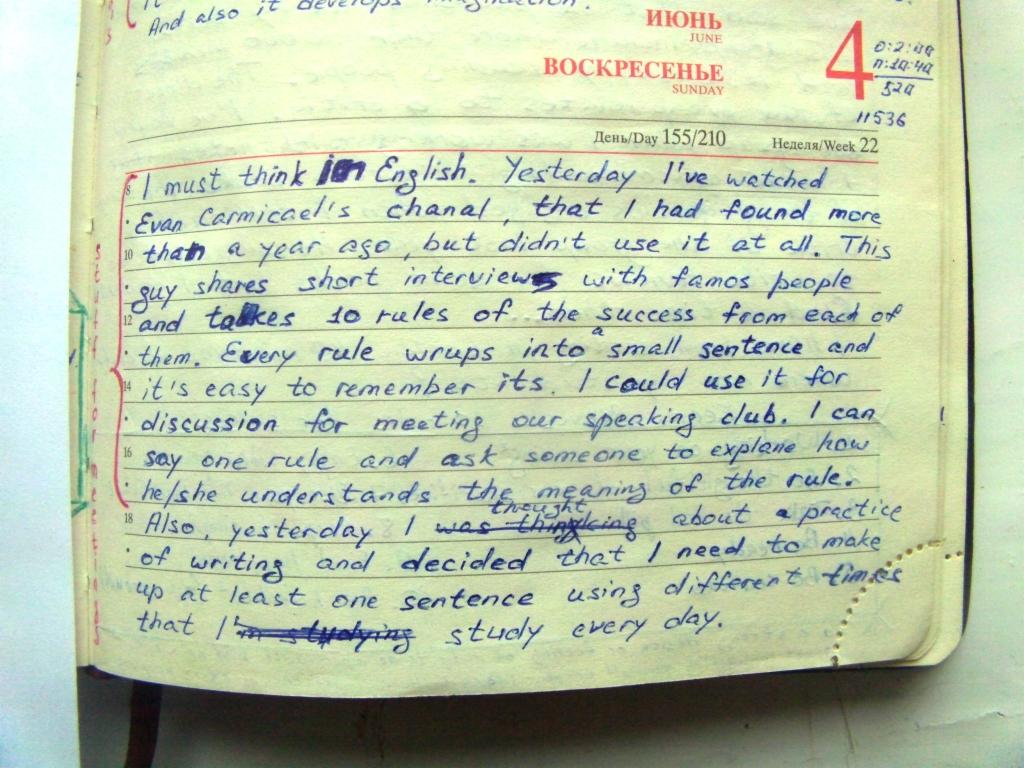 And also it develops imagination.
ИЮНЬ
JUNE
ВОСКРЕСЕНЬЕ
SUNDAY
4
11536
День/Day 155/210
Неделя/Week 22
8 I must think in English. Yesterday I've watched
Evan Carmicael's chanal, that I had found more
10 than a year ago, but didn't use it at all. This
guy shares short interviews with famos people
12 and takes 10 rules of the success from each of
them. Every rule wrups into a small sentence and
14 it's easy to remember its. I could use it for
discussion for meeting our speaking club. I can
16 say one rule and ask someone to explane how
he/she understands the meaning of the rule.
18 Also, yesterday I was thinking thought about a practice
of writing and decided that I need to make
up at least one sentence using different times
that I 'm studying study every day.